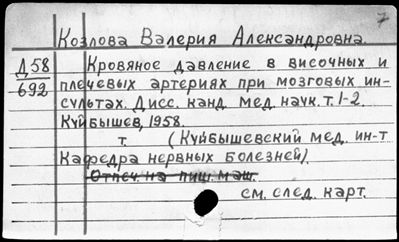 7
Козлова Валерия Александровна.
Д58 Кровяное давление в височных и
692 плечевых артериях при мозговых ин-
сультах. Дисс. канд. мед. наук. т. 1-2.
Куйбышев, 1958.
т. (Куйбышевский мед. ин-т
Кафедра нервных болезней).
Отпеч. на пиш. маш.
см. след. карт.